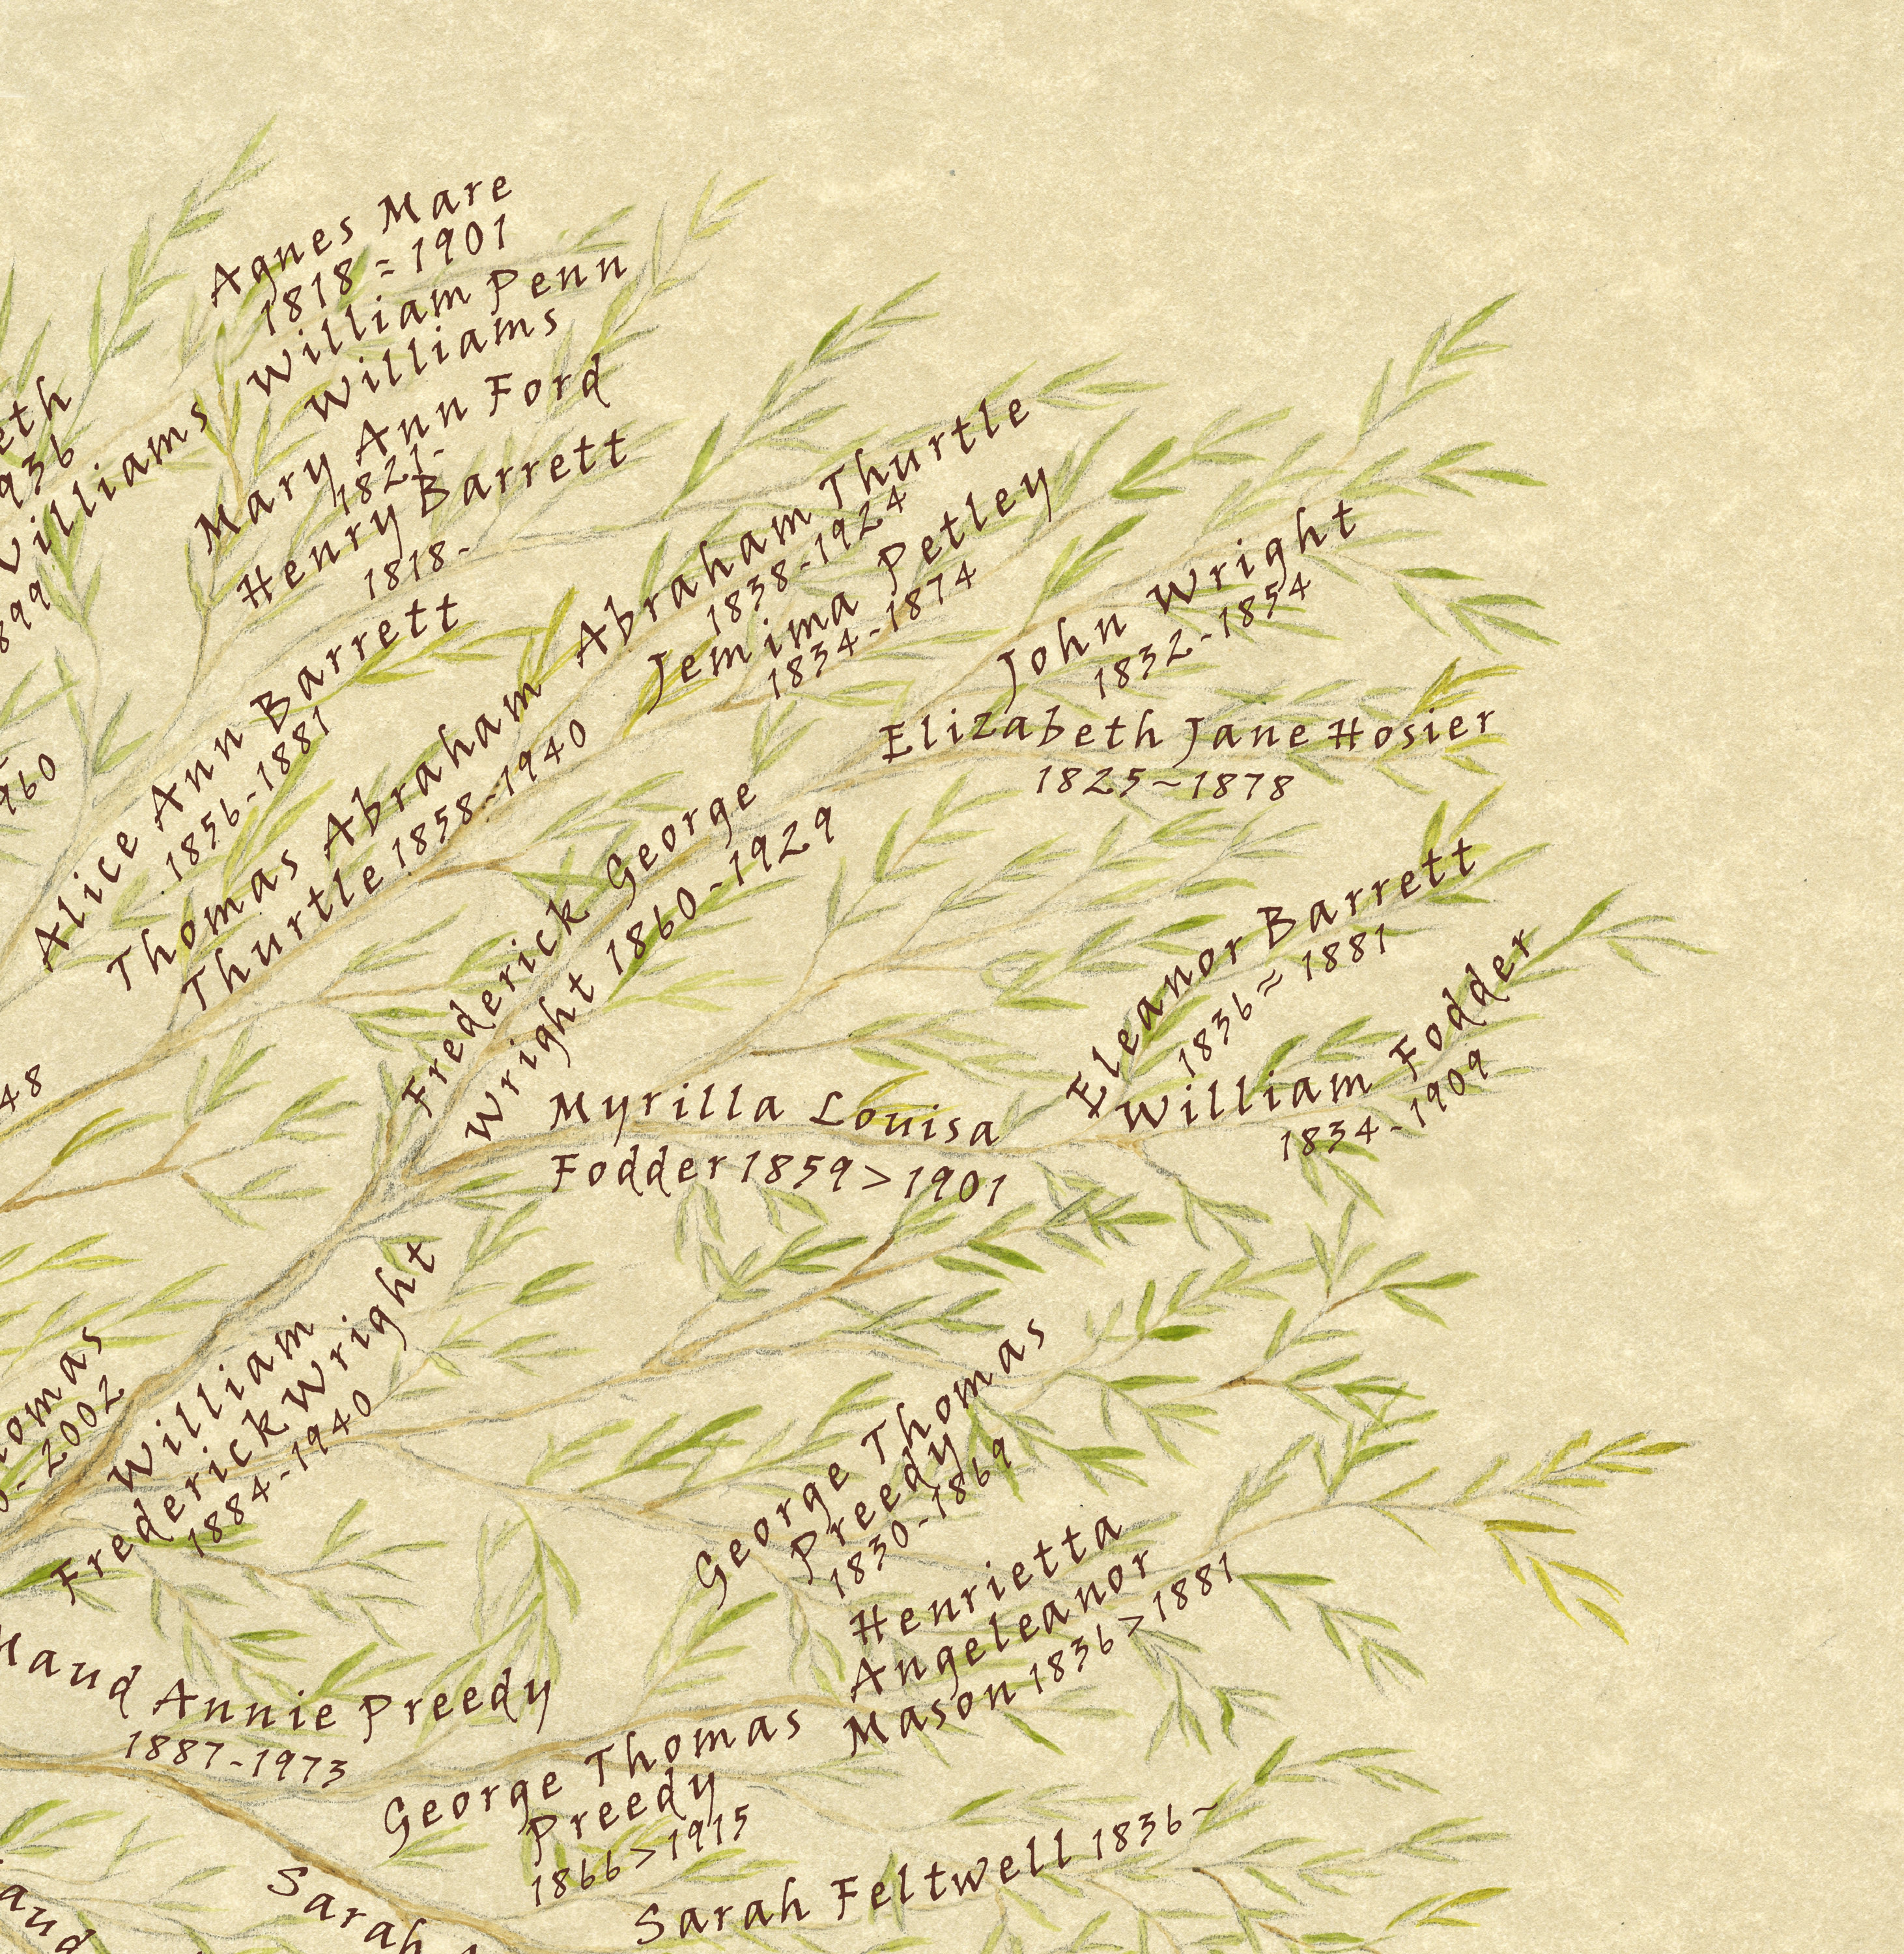 Agnes Mare
1818 = 1901
William Penn
Williams
Mary Ann Ford
1821-
Henry Barrett
1818-
eth
936
Williams
899
960
Alice Ann Barrett
1856-1881
Thomas Abraham
Thurtle 1858-1940
Abraham Thurtle
1838-1924
Jemima Petley
1834-1874
John Wright
1832-1854
Elizabeth Jane Hosier
1825~1878
Frederick George
Wright 1860-1929
Eleanor Barrett
1836 ≈ 1881
William Fodder
1834-1909
Myrilla Louisa
Fodder 1859 > 1901
48
omas
0-2002
William
Frederick Wright
1884-1940
George Thomas
Preedy
1830-1869
Henrietta
Angeleanor
Mason 1836 > 1881
Maud Annie Preedy
1887-1973
George Thomas
Preedy
1866 > 1915
Sarah Feltwell 1836~
Sarah
aud